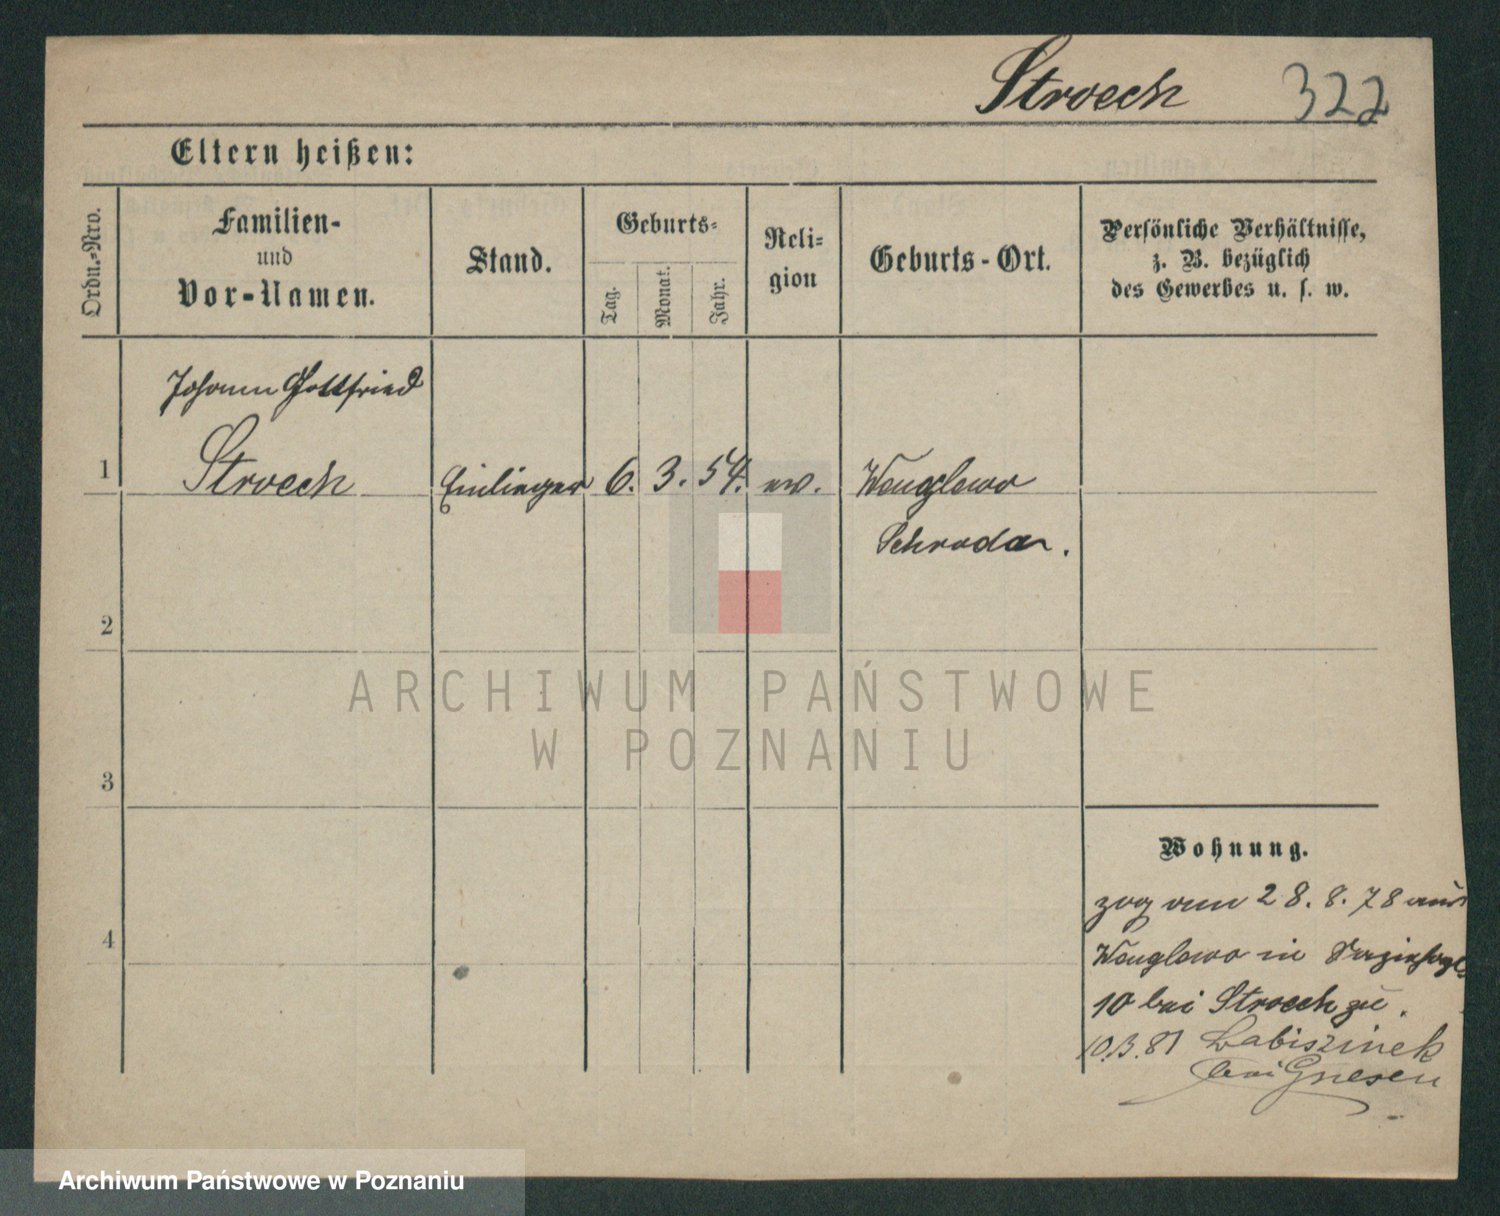 Stroech 322
Eltern heißen:
Ordn.-Nro.
Familien-
und
Vor-Namen.
Stand.
Geburts-
Tag.
Monat.
Jahr.
Reli-
gion
Geburts-Ort.
Persönliche Verhältnisse,
z. B. bezüglich
des Gewerbes u. s. w.
Johann Gottfried
1 Stroech Einlieger 6. 3. 54. ev. Wenglewo
Schroda.
2
ARCHIWUM PAŃSTWOWE
W POZNANIU
3
Wohnung.
zog am 28. 8. 78 aus
4 Wenglewo in
10 bei Stroech zu.
10.3.81 Labiszinek
bei Gnesen
Archiwum Państwowe w Poznaniu